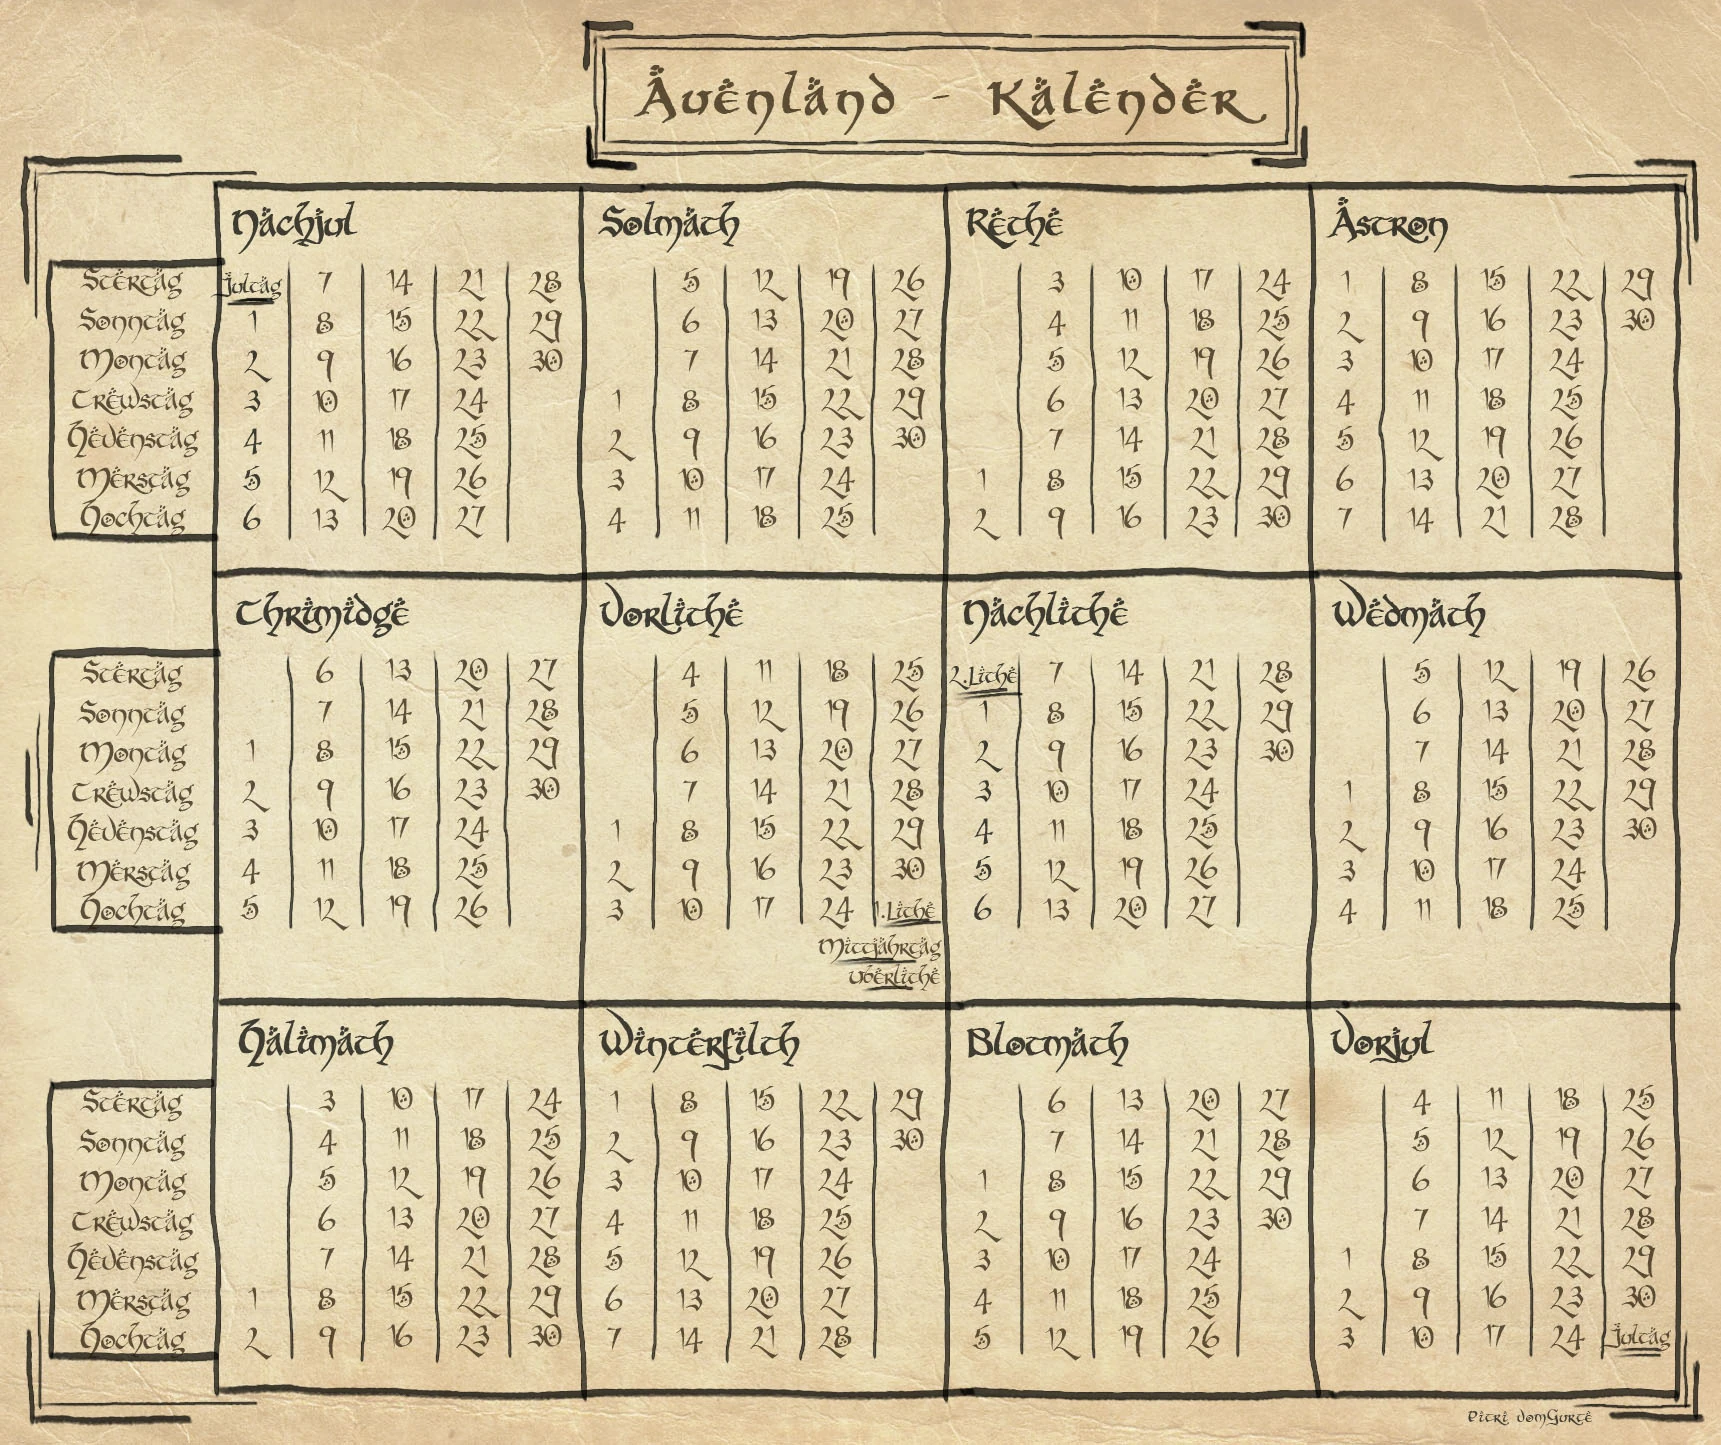 Auenland - Kalender
Nachjul Solmath Rethe Astron
Stertag Jultag 7 14 21 28 5 12 19 26 3 10 17 24 1 8 15 22 29
Sonntag 1 8 15 22 29 6 13 20 27 4 11 18 25 2 9 16 23 30
Montag 2 9 16 23 30 7 14 21 28 5 12 19 26 3 10 17 24
Trewstag 3 10 17 24 1 8 15 22 29 6 13 20 27 4 11 18 25
Hevenstag 4 11 18 25 2 9 16 23 30 7 14 21 28 5 12 19 26
Merstag 5 12 19 26 3 10 17 24 1 8 15 22 29 6 13 20 27
Hochtag 6 13 20 27 4 11 18 25 2 9 16 23 30 7 14 21 28
Thrimidge Vorlithe Nachlithe Wedmath
Stertag 6 13 20 27 4 11 18 25 2.Lithe 7 14 21 28 5 12 19 26
Sonntag 7 14 21 28 5 12 19 26 1 8 15 22 29 6 13 20 27
Montag 1 8 15 22 29 6 13 20 27 2 9 16 23 30 7 14 21 28
Trewstag 2 9 16 23 30 7 14 21 28 3 10 17 24 1 8 15 22 29
Hevenstag 3 10 17 24 1 8 15 22 29 4 11 18 25 2 9 16 23 30
Merstag 4 11 18 25 2 9 16 23 30 5 12 19 26 3 10 17 24
Hochtag 5 12 19 26 3 10 17 24 1.Lithe 6 13 20 27 4 11 18 25
Mittjahrtag
Uberlithe
Halimath Winterfilth Blotmath Vorjul
Stertag 3 10 17 24 1 8 15 22 29 6 13 20 27 4 11 18 25
Sonntag 4 11 18 25 2 9 16 23 30 7 14 21 28 5 12 19 26
Montag 5 12 19 26 3 10 17 24 1 8 15 22 29 6 13 20 27
Trewstag 6 13 20 27 4 11 18 25 2 9 16 23 30 7 14 21 28
Hevenstag 7 14 21 28 5 12 19 26 3 10 17 24 1 8 15 22 29
Merstag 1 8 15 22 29 6 13 20 27 4 11 18 25 2 9 16 23 30
Hochtag 2 9 16 23 30 7 14 21 28 5 12 19 26 3 10 17 24 Jultag
Pitri vomGurte